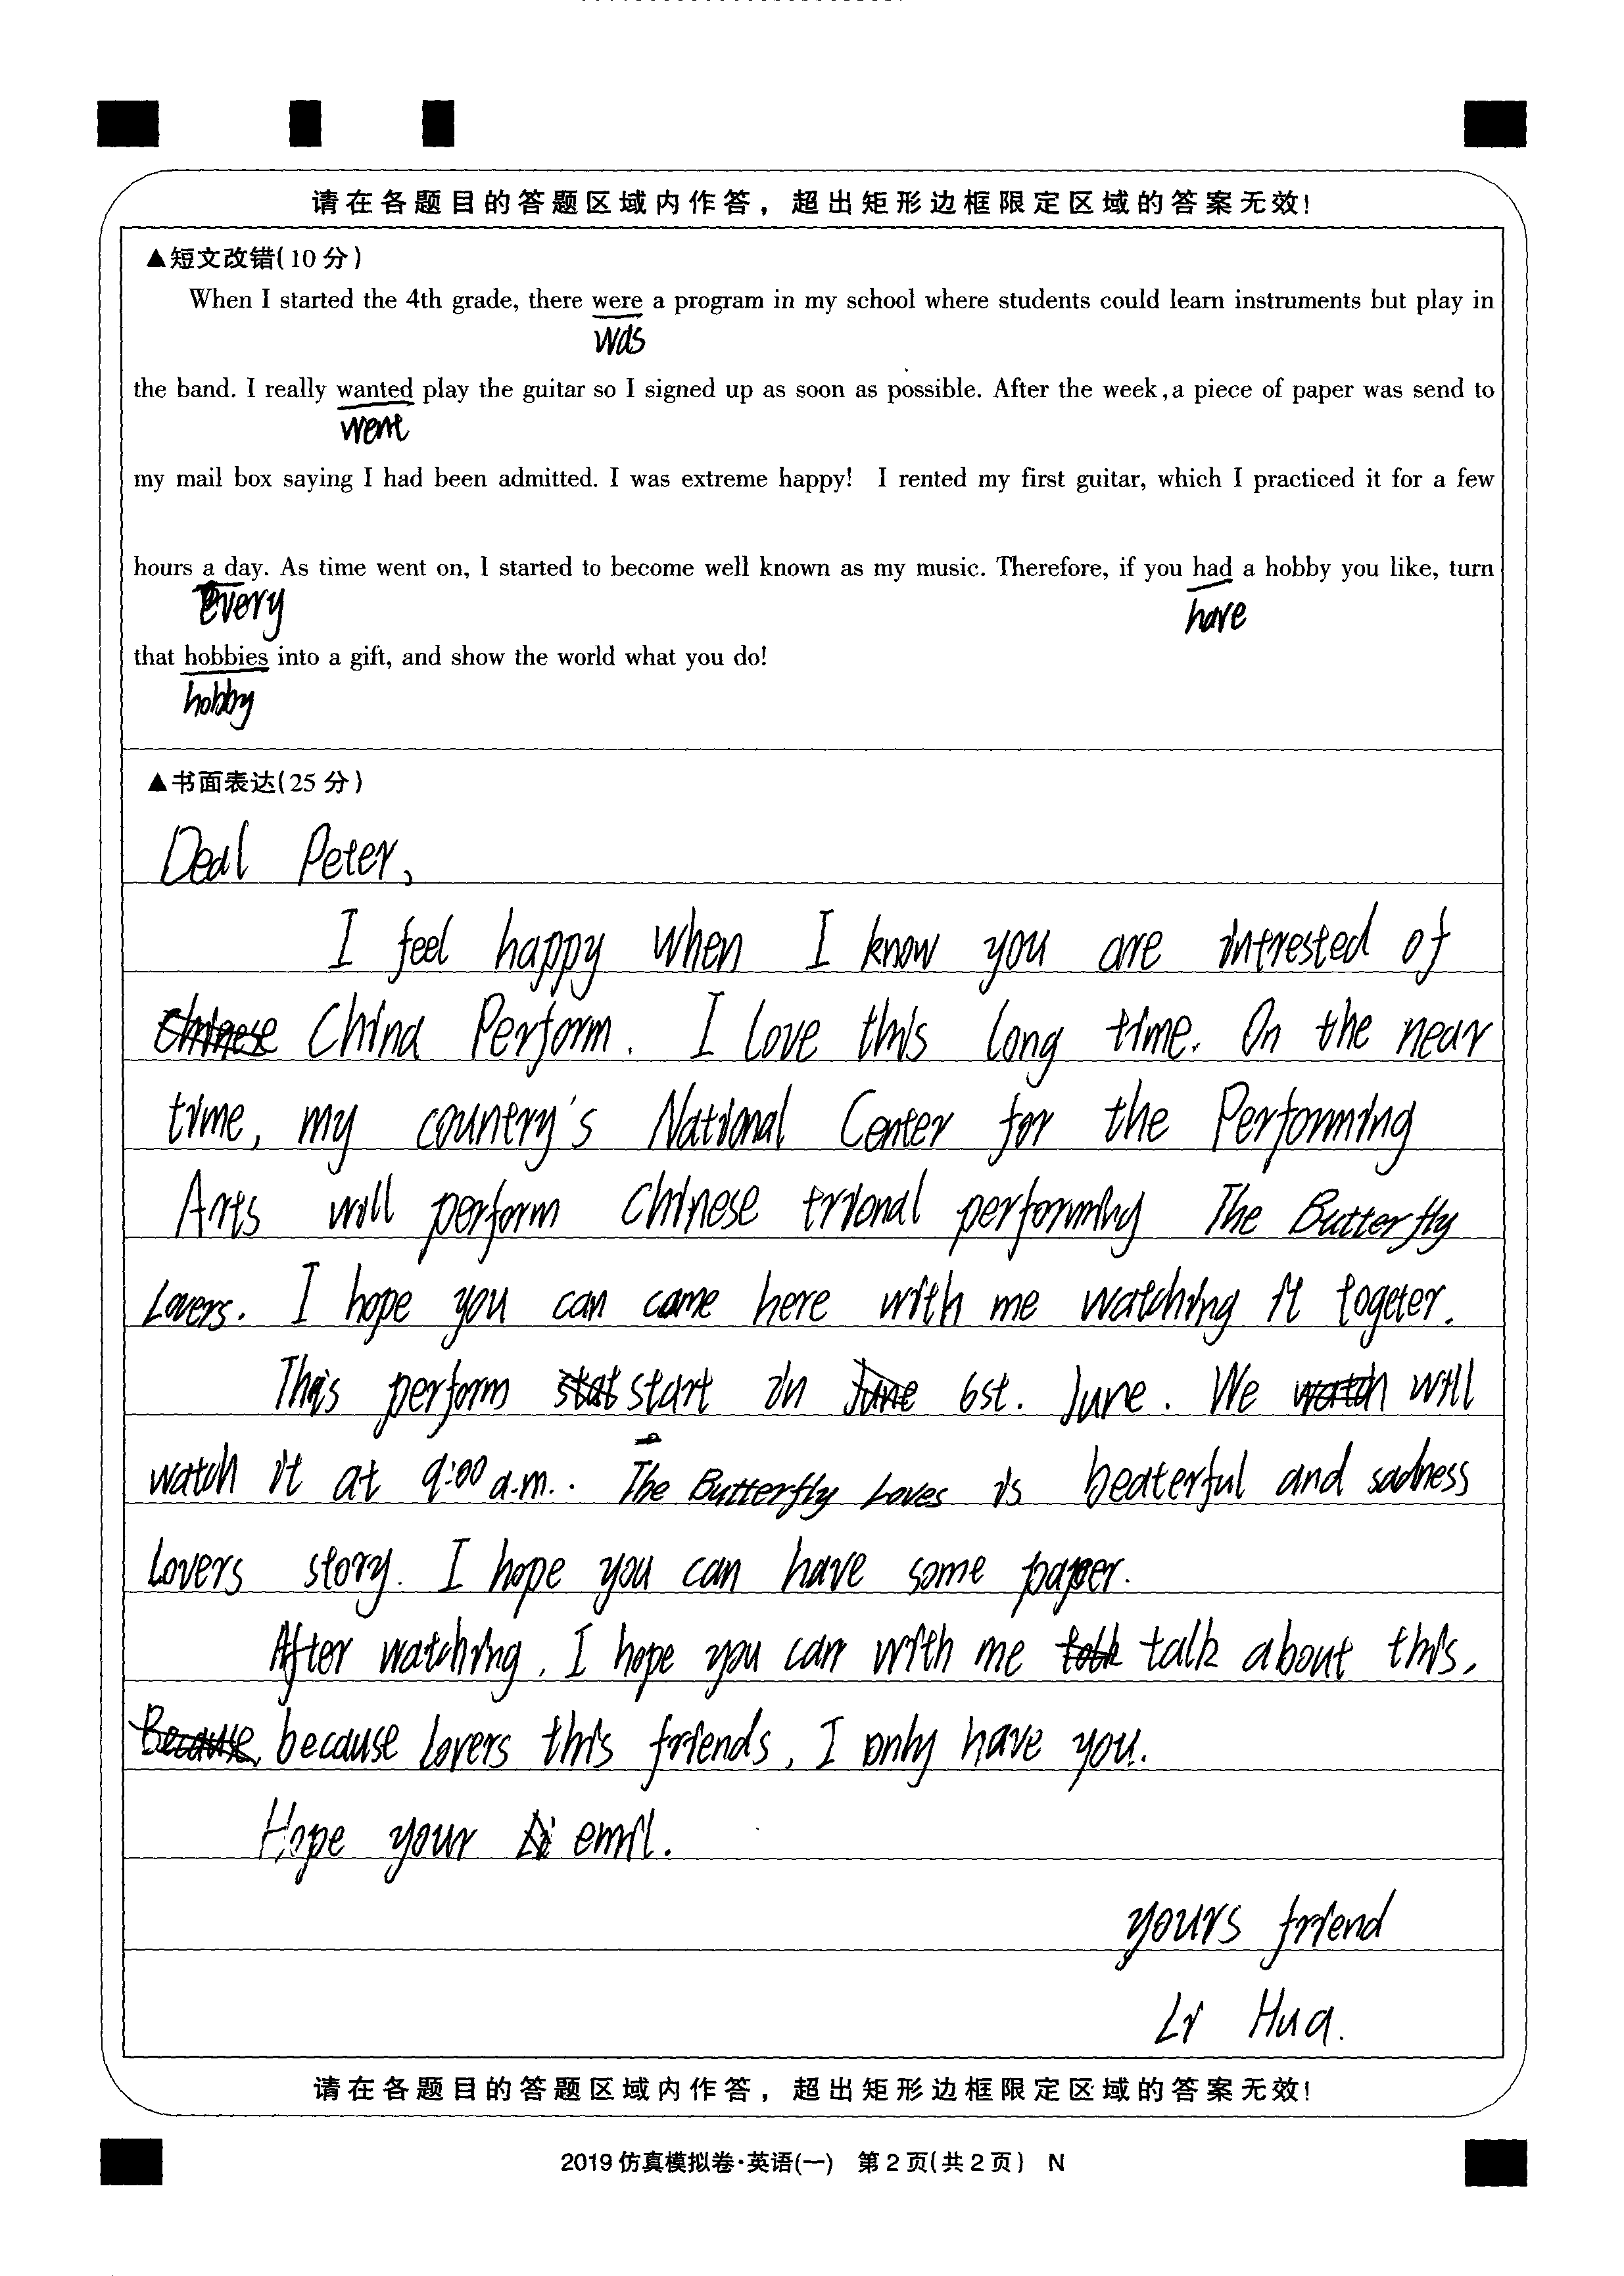 请在各题目的答题区域内作答，超出矩形边框限定区域的答案无效!
▲短文改错(10分)
When I started the 4th grade, there were a program in my school where students could learn instruments but play in
was
the band. I really wanted play the guitar so I signed up as soon as possible. After the week, a piece of paper was send to
went
my mail box saying I had been admitted. I was extreme happy! I rented my first guitar, which I practiced it for a few
hours a day. As time went on, I started to become well known as my music. Therefore, if you had a hobby you like, turn
every have
that hobbies into a gift, and show the world what you do!
hobby
▲书面表达(25分)
Deal Peter,
I feel happy when I know you are intrested of
Chinese China Perform. I love this long time. On the near
time, my country's National Center for the Performing
Arts will perform Chinese trional performing The Butterfly
Lovers. I hope you can come here with me watching it togeter.
This perform stat start in June 6st. June. We watch will
watch it at 9:00 a.m.. The Butterfly Loves is beaterful and sadness
lovers story. I hope you can have some paper.
After watching, I hope you can with me talk about this,
Because, because lovers this friends, I only have you.
Hope your emil.
yours friend
Li Hua.
请在各题目的答题区域内作答，超出矩形边框限定区域的答案无效!
2019仿真模拟卷·英语(一) 第2页(共2页) N